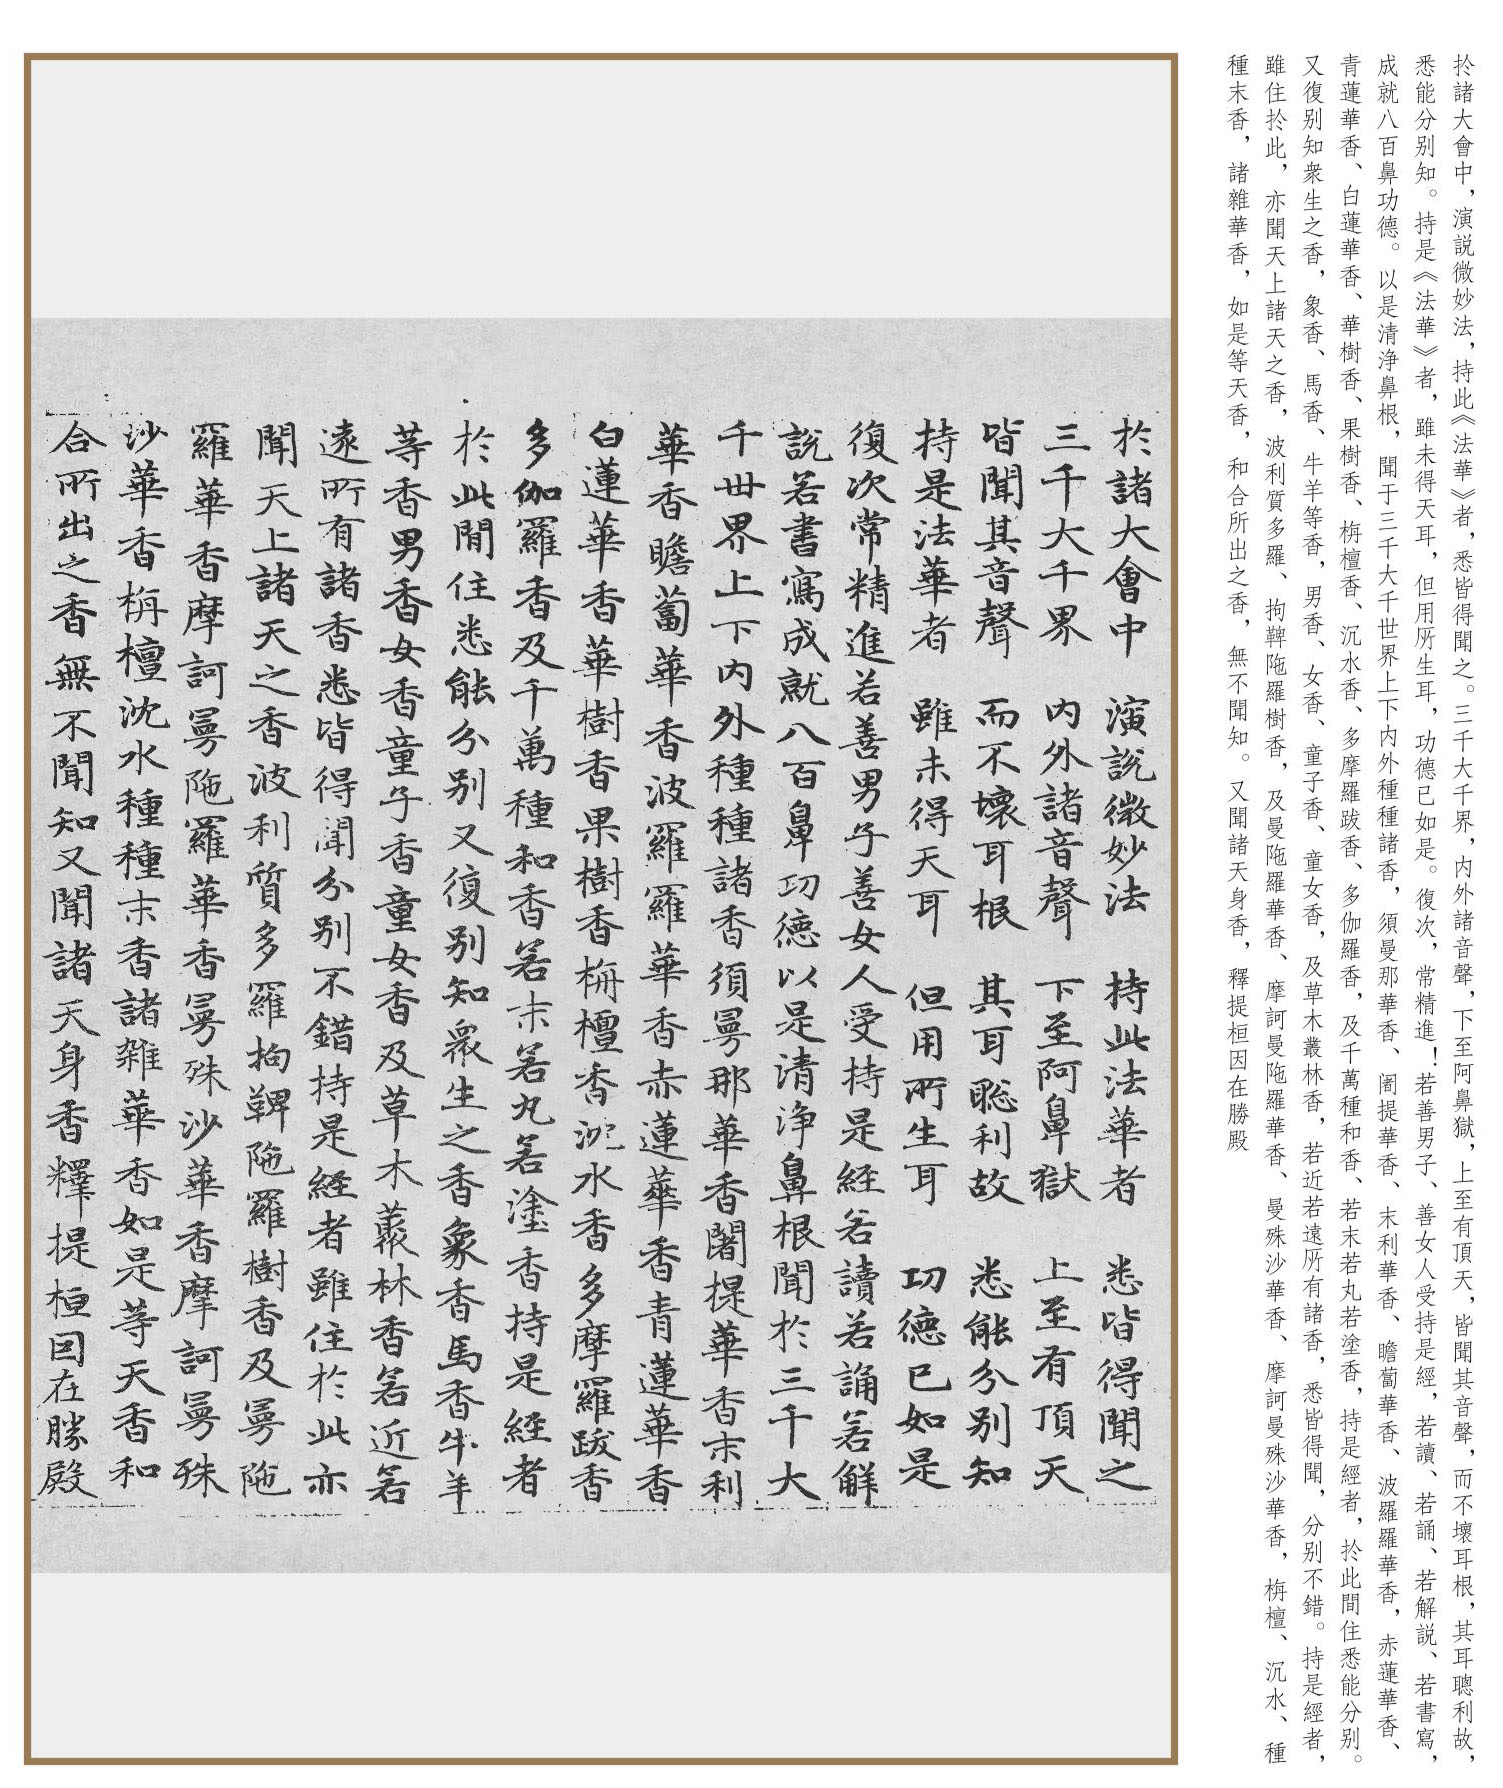 於諸大會中，演説微妙法，持此《法華》者，悉皆得聞之。三千大千界，内外諸音聲，下至阿鼻獄，上至有頂天，皆聞其音聲，而不壞耳根，其耳聰利故，
悉能分别知。持是《法華》者，雖未得天耳，但用所生耳，功德已如是。復次，常精進！若善男子、善女人受持是經，若讀、若誦、若解説、若書寫，
成就八百鼻功德。以是清浄鼻根，聞于三千大千世界上下内外種種諸香，須曼那華香、闍提華香、末利華香、瞻蔔華香、波羅羅華香，赤蓮華香、
青蓮華香、白蓮華香、華樹香、果樹香、栴檀香、沉水香、多摩羅跋香、多伽羅香，及千萬種和香、若末若丸若塗香，持是經者，於此間住悉能分别。
又復别知衆生之香，象香、馬香、牛羊等香，男香、女香、童子香、童女香，及草木叢林香，若近若遠所有諸香，悉皆得聞，分别不錯。持是經者，
雖住於此，亦聞天上諸天之香，波利質多羅、拘鞞陁羅樹香，及曼陁羅華香、摩訶曼陁羅華香、曼殊沙華香、摩訶曼殊沙華香，栴檀、沉水、種
種末香，諸雜華香，如是等天香，和合所出之香，無不聞知。又聞諸天身香，釋提桓因在勝殿
於諸大會中　演説微妙法　持此法華者　悉皆得聞之
三千大千界　内外諸音聲　下至阿鼻獄　上至有頂天
皆聞其音聲　而不壞耳根　其耳聡利故　悉能分别知
持是法華者　雖未得天耳　但用所生耳　功德已如是
復次常精進若善男子善女人受持是經若讀若誦若解
説若書寫成就八百鼻功德以是清浄鼻根聞於三千大
千世界上下内外種種諸香須曼那華香闍提華香末利
華香瞻蔔華香波羅羅華香赤蓮華香青蓮華香
白蓮華香華樹香果樹香栴檀香沉水香多摩羅跋香
多伽羅香及千萬種和香若末若丸若塗香持是經者
於此間住悉能分别又復别知衆生之香象香馬香牛羊
等香男香女香童子香童女香及草木叢林香若近若
遠所有諸香悉皆得聞分别不錯持是經者雖住於此亦
聞天上諸天之香波利質多羅拘鞞陁羅樹香及曼陁
羅華香摩訶曼陁羅華香曼殊沙華香摩訶曼殊
沙華香栴檀沈水種種末香諸雜華香如是等天香和
合所出之香無不聞知又聞諸天身香釋提桓因在勝殿